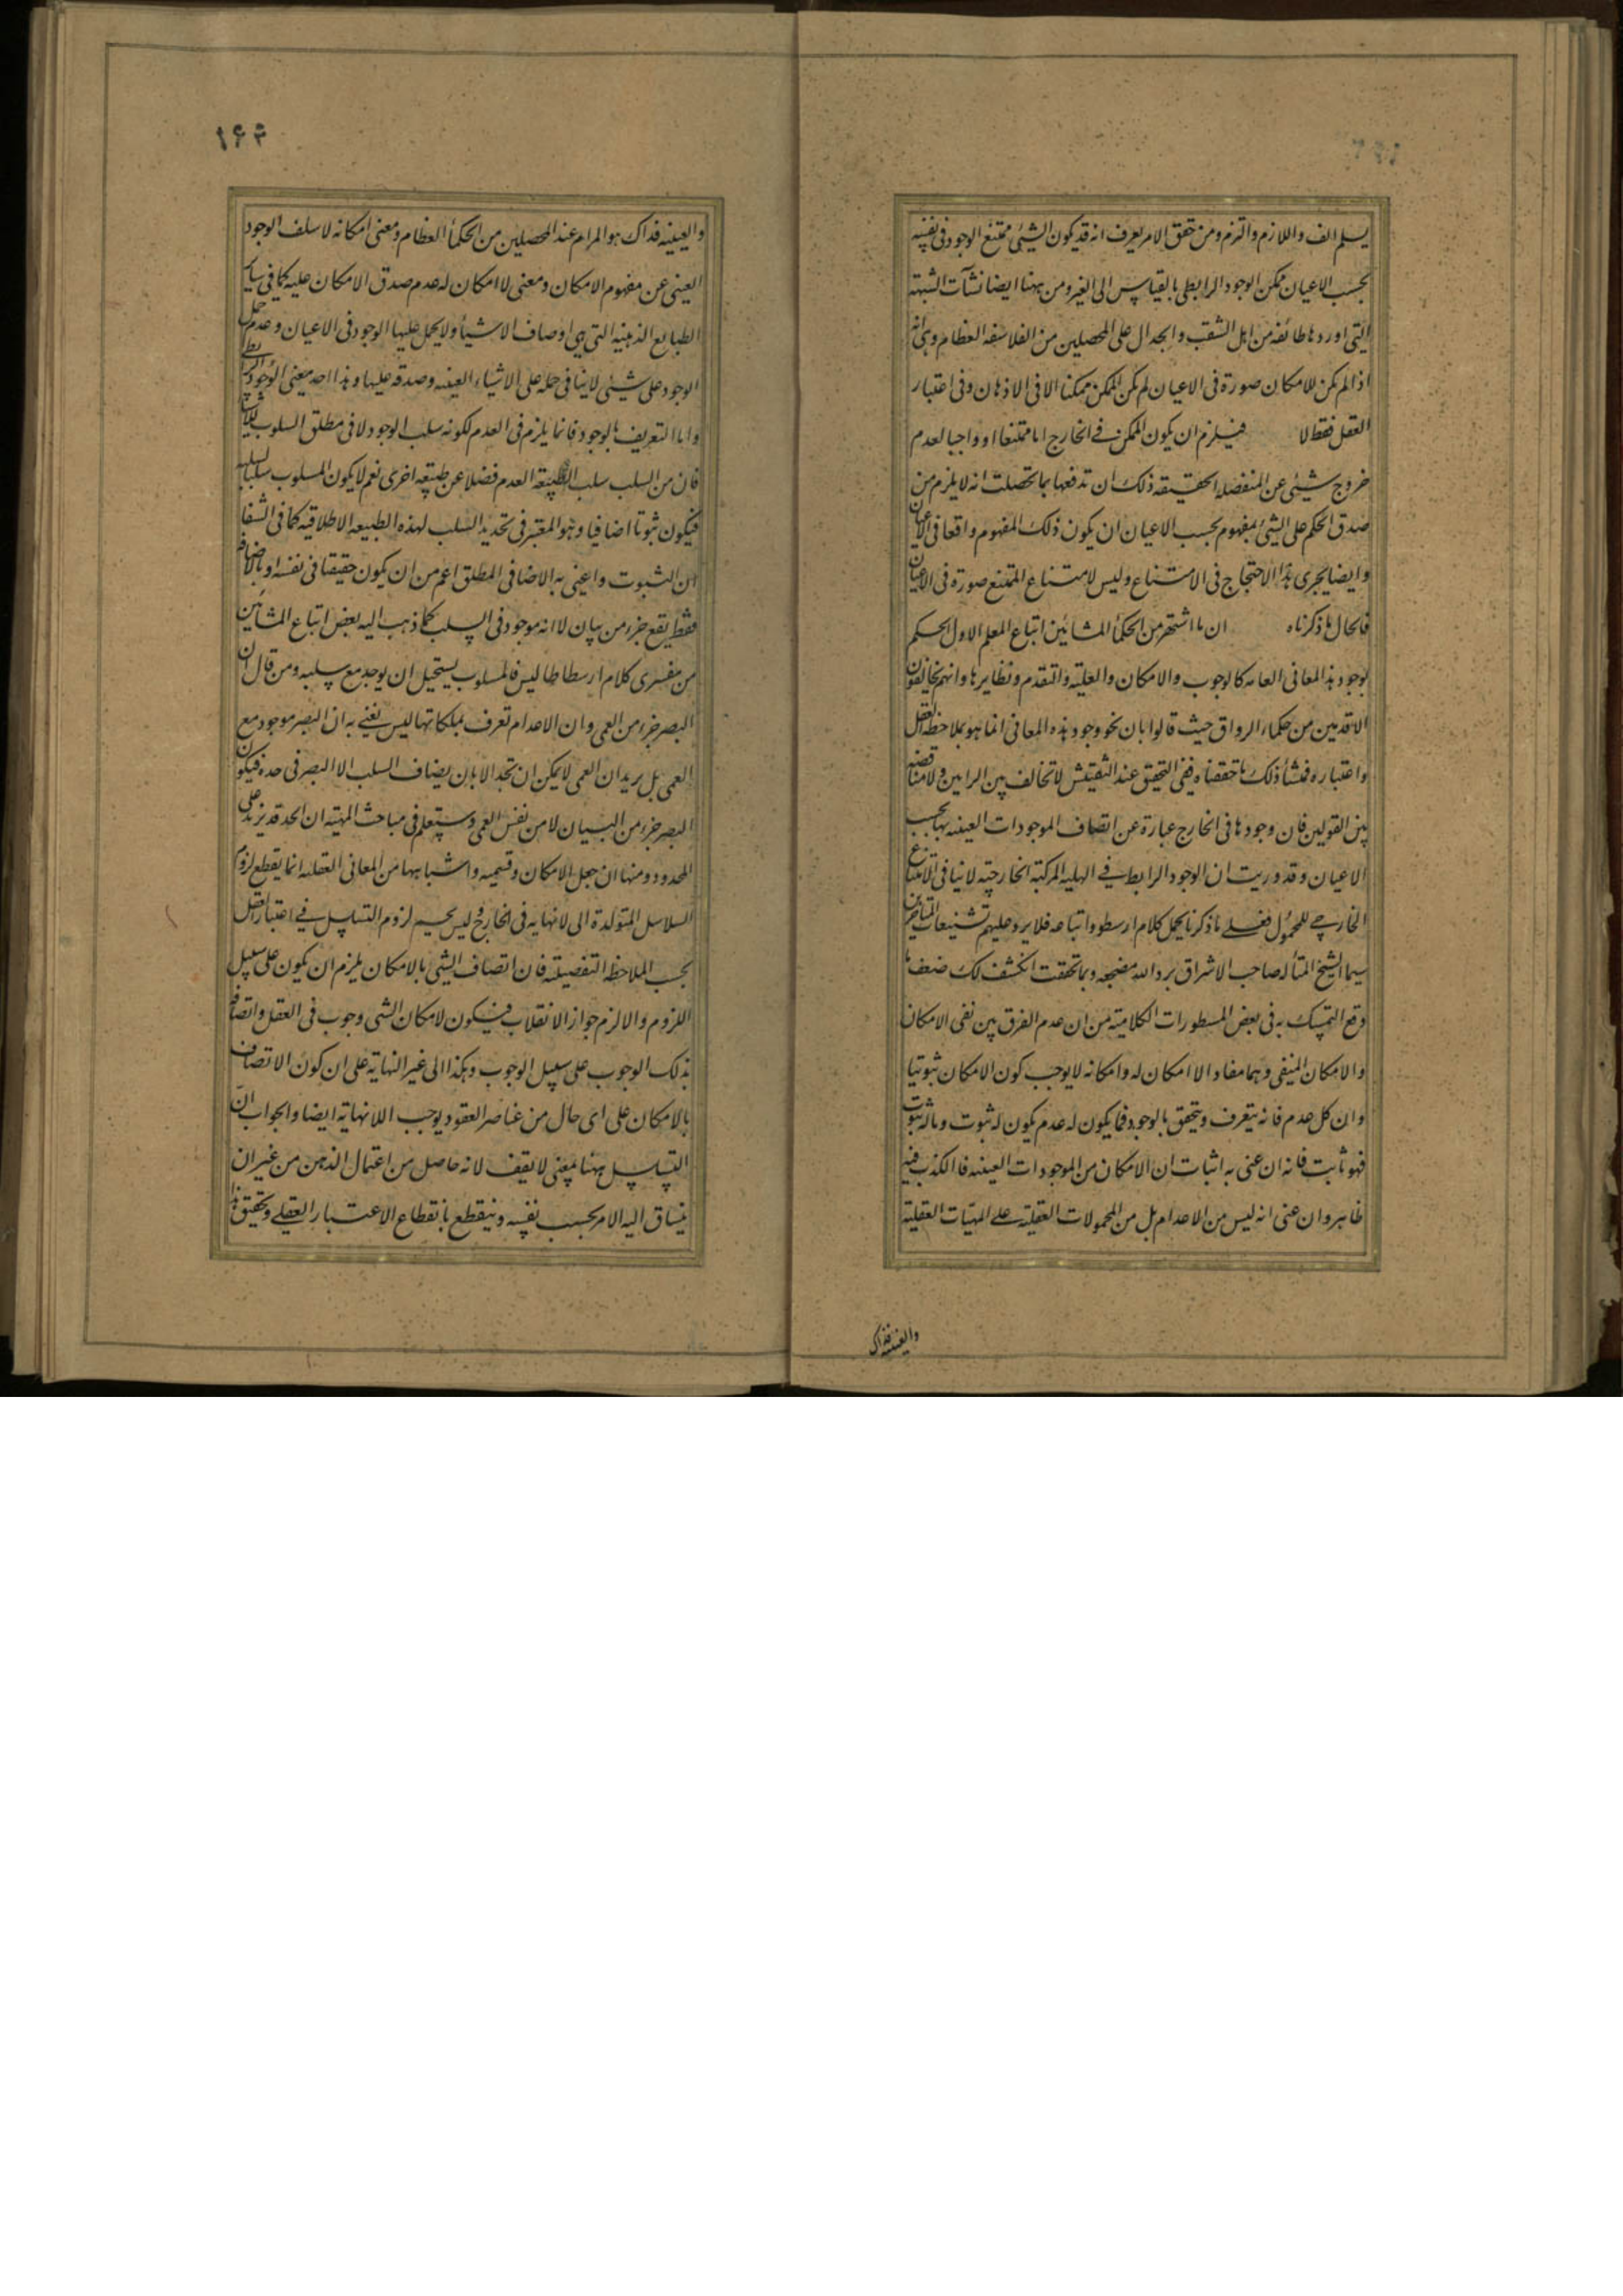 يسلم الف واللازم والتزم ومن حقق الامر يعرف انه قد يكون الشيئ ممتنع الوجود فى نفسه
بحسب الاعيان ممكن الوجود الرابطى بالقياس الى الغير ومن ههنا ايضا نشأت الشبهة
التى اوردها طائفه من اهل الشغب والجدال على المحصلين من الفلاسفه العظام وهى انه
اذا لم يكن للامكان صورة فى الاعيان لم يكن الممكن ممكنا الا فى الاذهان وفى اعتبار
العقل فقط لا فيلزم ان يكون الممكن فى الخارج اما ممتنعا او واجبا لعدم
خروج شيئى عن المنفصله الحقيقه ذلك ان تدفعها بما تحصلت انه لا يلزم من
صدق الحكم على الشيئ بمفهوم بحسب الاعيان ان يكون ذلك المفهوم واقعا فى الاعيان
وايضا يجرى هذا الاحتجاج فى الامتناع وليس لامتناع الممتنع صورة فى الاعيان
فالحال ما ذكرناه ان ما اشتهر من الحكمأ المشائين اتباع المعلم الاول الحكم
بوجود هذا المعانى العامه كالوجوب والامكان والعليه والتقدم ونظايرها وانهم يخالفون
الاقدمين من حكماء الرواق حيث قالوا بان نحو وجود هذه المعانى انما هو بملاحظه العقل
واعتباره فمنشأ ذلك ما حققناه ففى التحقيق عند التفتيش لا تخالف بين الرايين ولا مناقضه
بين القولين فان وجودها فى الخارج عبارة عن اتصاف الموجودات العينيه بها بحسب
الاعيان وقد وريت ان الوجود الرابط فى الهليه المركبة الخارجيه لا ينافى الامتناع
الخارجے للمحمول فعلے ما ذكرنا يحمل كلام ارسطو واتباعه فلا يرد عليهم تشنيعات المتاخرين
سيما الشيخ المتأله صاحب الاشراق برد الله مضجعه وبما تحققت انكشف لك ضعف ما
وقع التمسك به فى بعض المسطورات الكلاميه من ان عدم الفرق بين نفى الامكان
والامكان المنفى وهما مفاد الا امكان له وامكانه لا يوجب كون الامكان ثبوتيا
وان كل عدم فانه يتعرف ويتحقق بالوجود فما يكون له عدم يكون له ثبوت وماله ثبوت
فهو ثابت فانه ان عنى به اثبات ان الامكان من الموجودات العينيه فالكذب فيه
ظاهر وان عنى انه ليس من الاعدام بل من المحمولات العقليه علے المهيات العقلية
والعينيه فذاك
۱۶۴
والعينيه فذاك هو المرام عند المحصلين من الحكمأ العظام ومعنى امكانه لا سلف الوجود
العينى عن مفهوم الامكان ومعنى لا امكان له عدم صدق الامكان عليه كما فى ساير
الطبايع الذهنيه التى هى اوصاف الاشيأ ولا يحمل عليها الوجود فى الاعيان وعدم حمل
الوجود على شيئى لا ينافى حمله على الاشياء العينيه وصدقه عليها وهذا احد معنى الوجود الرابطى
واما التعريف بالوجود فانما يلزم فى العدم لكونه سلب الوجود لا فى مطلق السلوب
فان من السلب سلب الطبيعه العدم فضلا عن طبيعه اخرى نعم لا يكون المسلوب سلبا
فيكون ثبوتا اضافيا وهو المعتبر فى تحديد السلب لهذه الطبيعه الاطلاقيه كما فى الشفا
ان الثبوت واعنى به الاضافى المطلق اعم من ان يكون حقيقا فى نفسه او بالاضافه
فقط يقع جزء من بيان لا انه موجود فى السلب كما ذهب اليه بعض اتباع المشائين
من مفسرى كلام ارسطاطاليس فالمسلوب يستحيل ان يوجد مع سلبه ومن قال ان
البصر جزء من العمى وان الاعدام تعرف بملكاتها ليس يعنے به ان البصر موجود مع
العمى بل يريد ان العمى لا يمكن ان تحد الا بان يضاف السلب الا البصر فى حده فيكون
البصر جزء من البيان لا من نفس العمى وستعلم فى مباحث المهيه ان الحد قد يزيد على
المحدود ومنها ان جعل الامكان وقسيميه واشباهها من المعانى العقليه انما يقطع لزوم
السلاسل المتولدة الى لا نهايه فى الخارج وليس يحسم لزوم التسلسل فے اعتبار العقل
بحسب الملاحظه التفصيليه فان اتصاف الشى بالامكان يلزم ان يكون على سبيل
اللزوم والا لزم جواز الانقلاب فيكون لامكان الشى وجوب فى العقل واتصافه
بذلك الوجوب على سبيل الوجوب وهكذا الى غير النهاية على ان كون الاتصاف
بالامكان على اى حال من عناصر العقود يوجب اللانهاية ايضا والجواب ان
التسلسل ههنا بمعنى لا يقف لانه حاصل من اعتمال الذهن من غير ان
ينساق اليه الامر بحسب نفسه وينقطع بانقطاع الاعتبار العقلے وتحقيق هذا